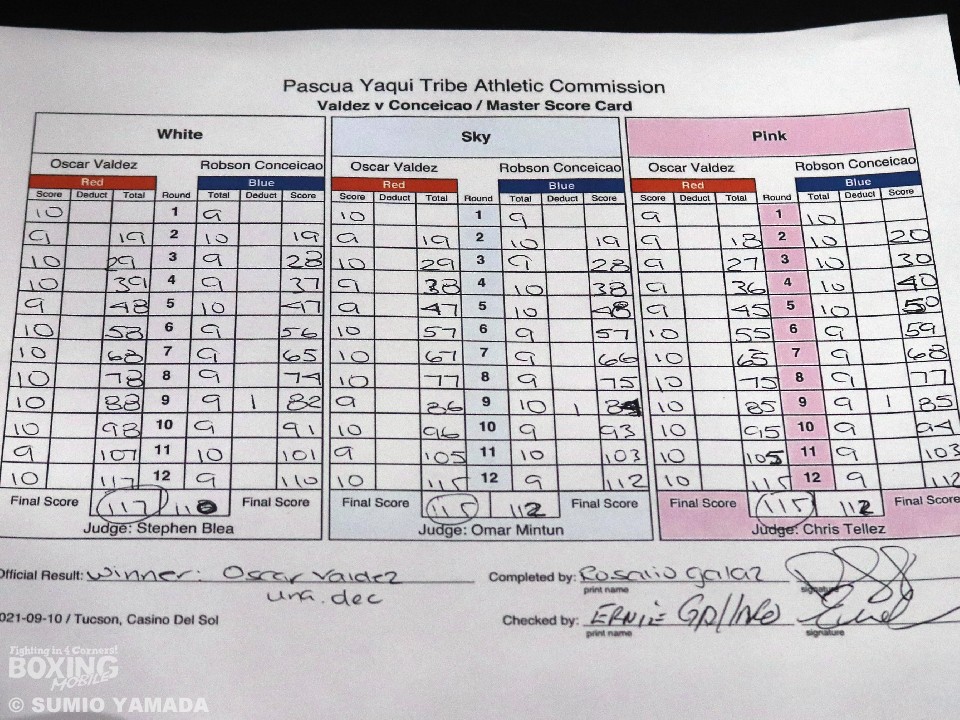 Pascua Yaqui Tribe Athletic Commission
Valdez v Conceicao / Master Score Card
White Sky Pink
Oscar Valdez Robson Conceicao Oscar Valdez Robson Conceicao Oscar Valdez Robson Conceicao
Red Blue Red Blue Red Blue
Score Deduct Total Round Total Deduct Score Score Deduct Total Round Total Deduct Score Score Deduct Total Round Total Deduct Score
10 1 9 10 1 9 9 1 10
9 19 2 10 19 9 19 2 10 19 9 18 2 10 20
10 29 3 9 28 10 29 3 9 28 9 27 3 10 30
10 39 4 9 37 9 38 4 10 38 9 36 4 10 40
9 48 5 10 47 9 47 5 10 48 9 45 5 10 50
10 58 6 9 56 10 57 6 9 57 10 55 6 9 59
10 68 7 9 65 10 67 7 9 66 10 65 7 9 68
10 78 8 9 74 10 77 8 9 75 10 75 8 9 77
10 88 9 9 1 82 9 86 9 10 1 84 10 85 9 9 1 85
10 98 10 9 91 10 96 10 9 93 10 95 10 9 94
9 107 11 10 101 9 105 11 10 103 10 105 11 9 103
10 117 12 9 110 10 115 12 9 112 10 115 12 9 112
Final Score 117 110 Final Score Final Score 115 112 Final Score Final Score 115 112 Final Score
Judge: Stephen Blea Judge: Omar Mintun Judge: Chris Tellez
Official Result: Winner: Oscar Valdez Completed by: Rosalio Galaz
print name signature
una. dec
021-09-10 / Tucson, Casino Del Sol Checked by: ERNIE GALLARDO
print name signature
Fighting in 4 Corners!
BOXING
MOBILE
© SUMIO YAMADA